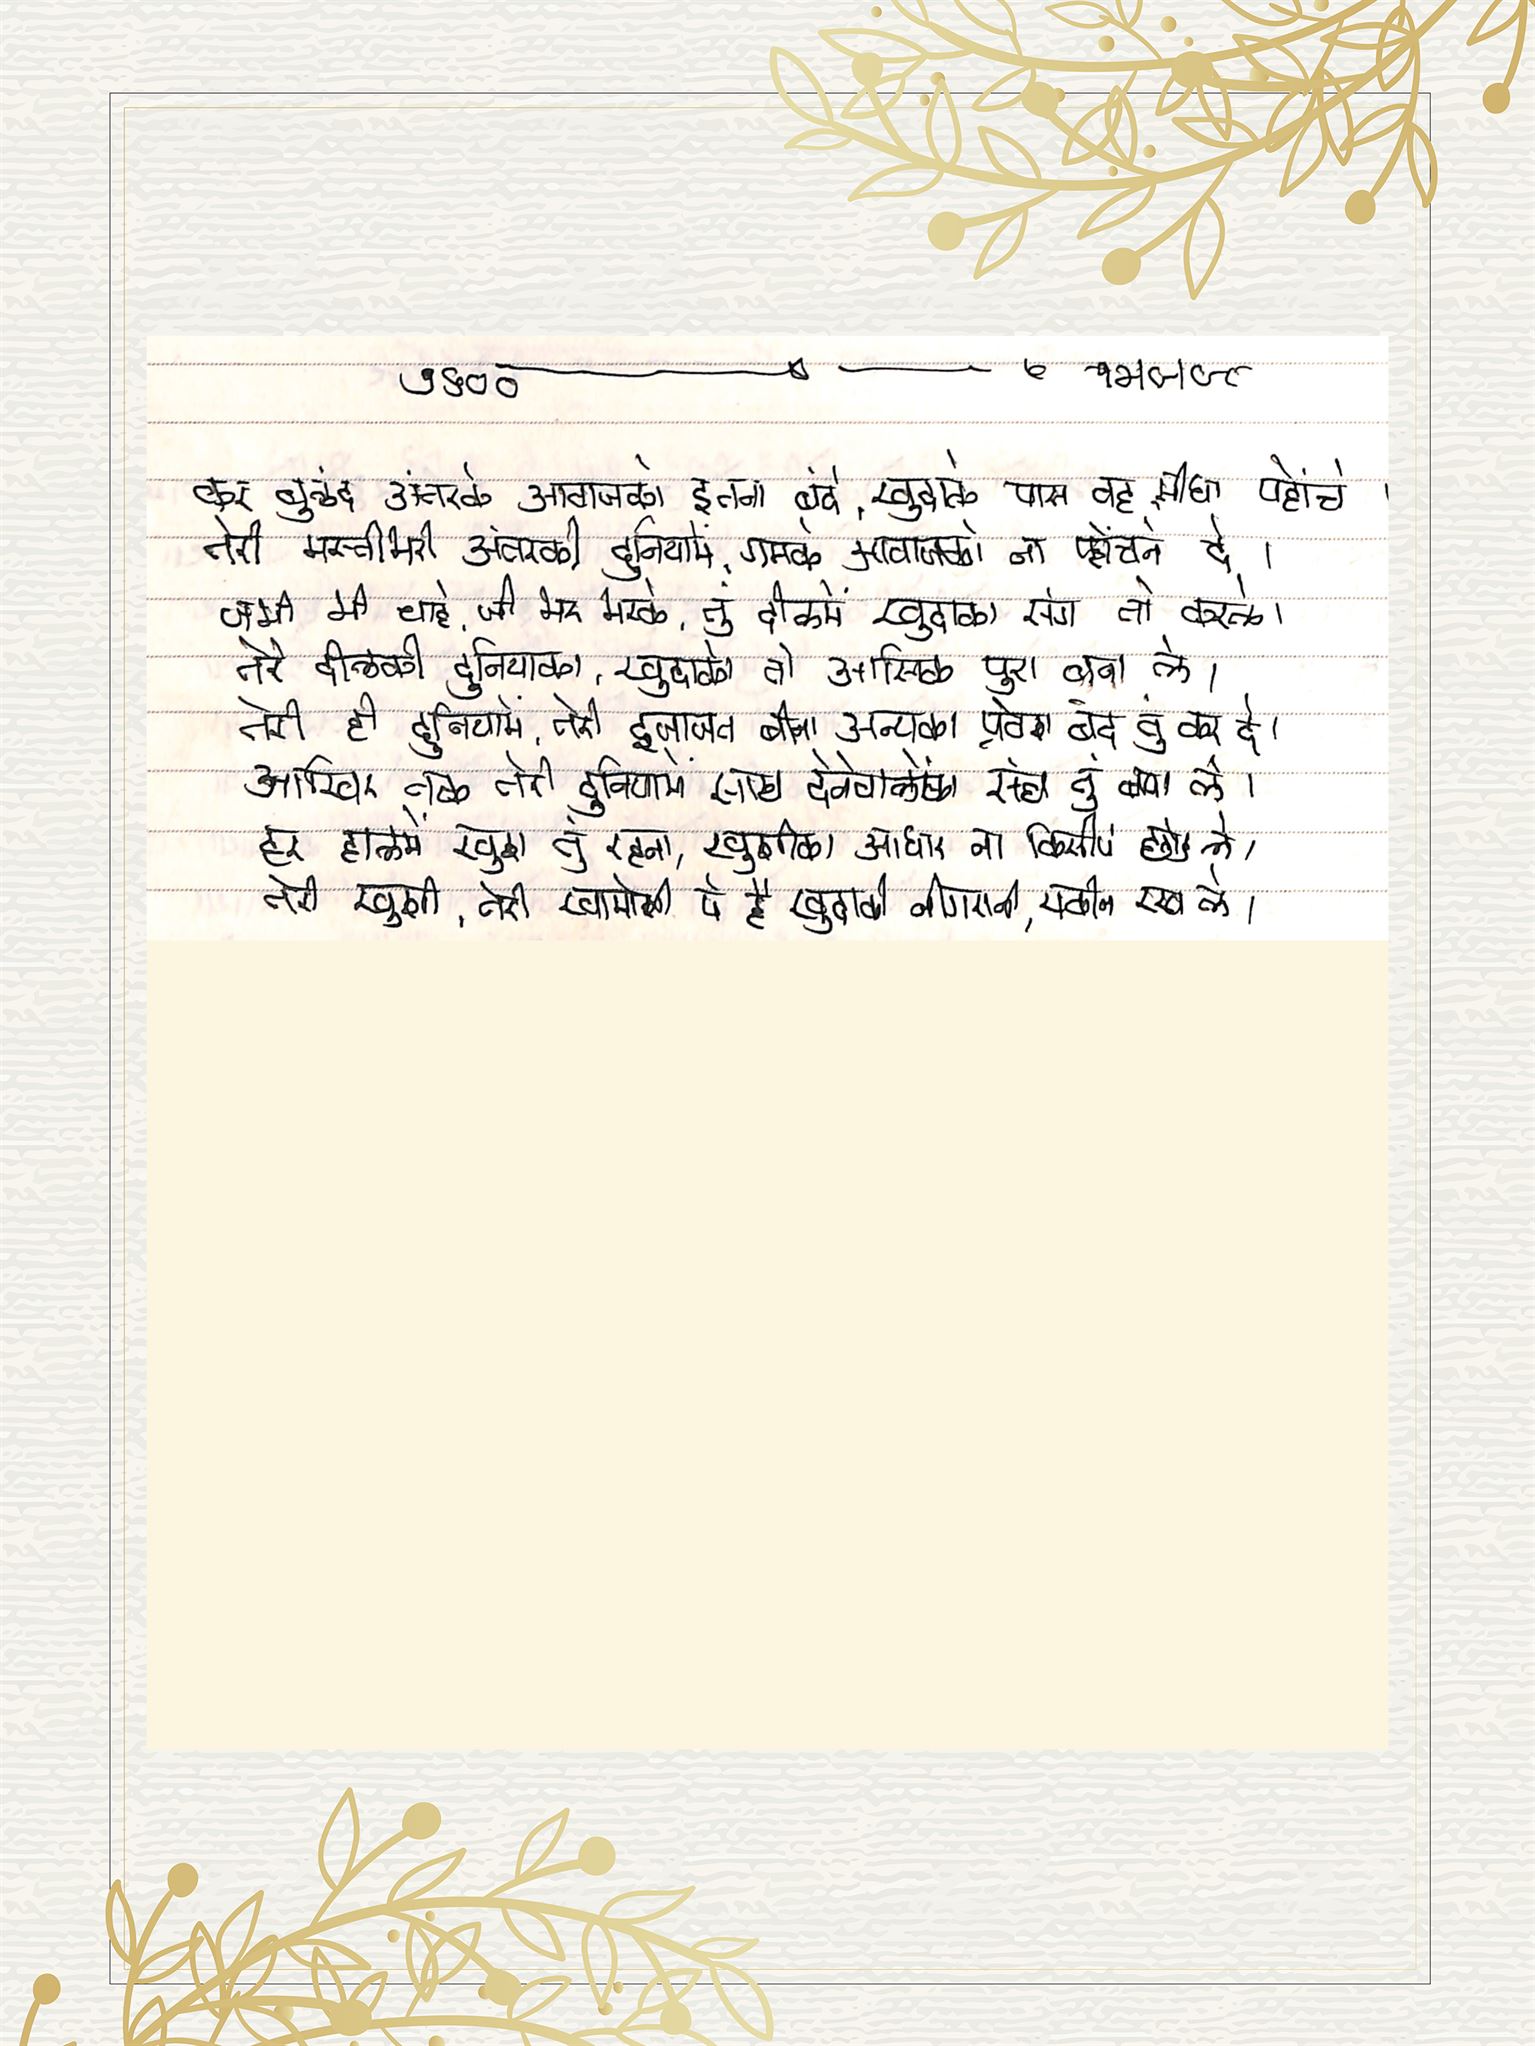 कर बुलंद अंतरके आवाजको इतना बंदे, खुदाके पास वह सीधा पहोंचे ।
तेरी मस्तीभरी अंतरकी दुनियामें, गमके आवाजको ना पहोंचने दे ।
जभी भी चाहे, जी भर भरके, तुं दीलमें खुदाका संग तो करले ।
तेरे दीलकी दुनियाका, खुदाको तो आसिक पुरा बना ले ।
तेरी ही दुनियामें, तेरी इजाजत बीना अन्यका प्रवेश बंद तुं कर दे ।
आखिर तक तेरी दुनियामें साथ देनेवालोंका संघ तुं बना ले ।
हर हालमें खुश तुं रहना, खुशीका आधार ना किसीपे ले ।
तेरी खुशी, तेरी खामोशी पे है खुदाकी नीगरानी, यकीन रख ले ।